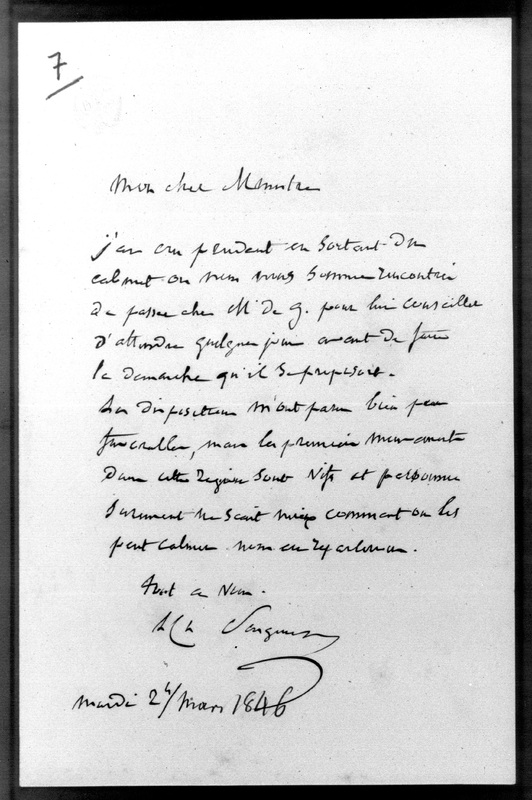 7
Mon cher Ministre
j'ai cru prudent en sortant du
cabinet ou nous nous sommes rencontrés
de passer chez M. de G. pour lui conseiller
d'attendre quelques jours avant de faire
la demarche qu'il se proposait.
Les dispositions m'ont paru bien peu
favorables, mais les premiers mouvements
dans cette region sont vifs et personne
surement ne scait mieux comment on les
peut calmer. nous en reparlerons.
tout a vous.
mardi 24 Mars 1846